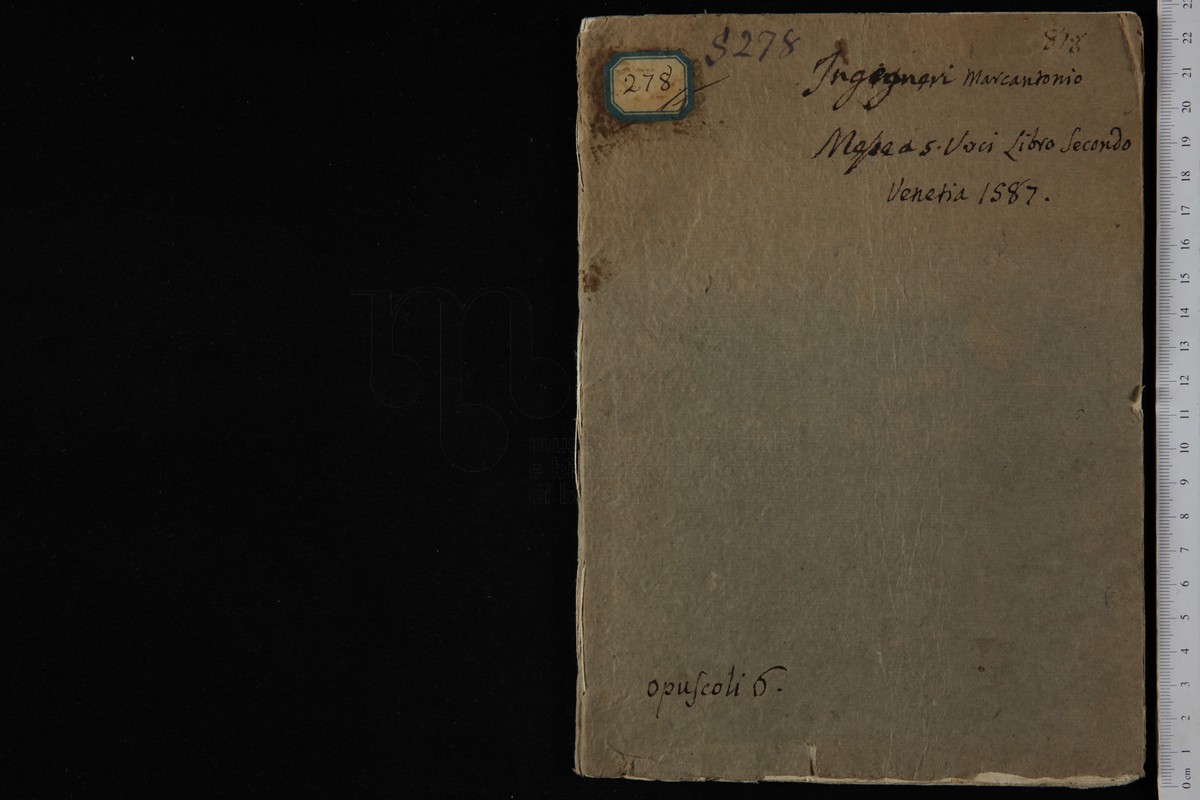 S278
278
818
Ingigneri Marcantonio
Messe a 5. Voci Libro Secondo
Venetia 1587.
opuscoli 6.
23
22
21
20
19
18
17
16
15
14
13
12
11
10
9
8
7
6
5
4
3
2
1
0 cm